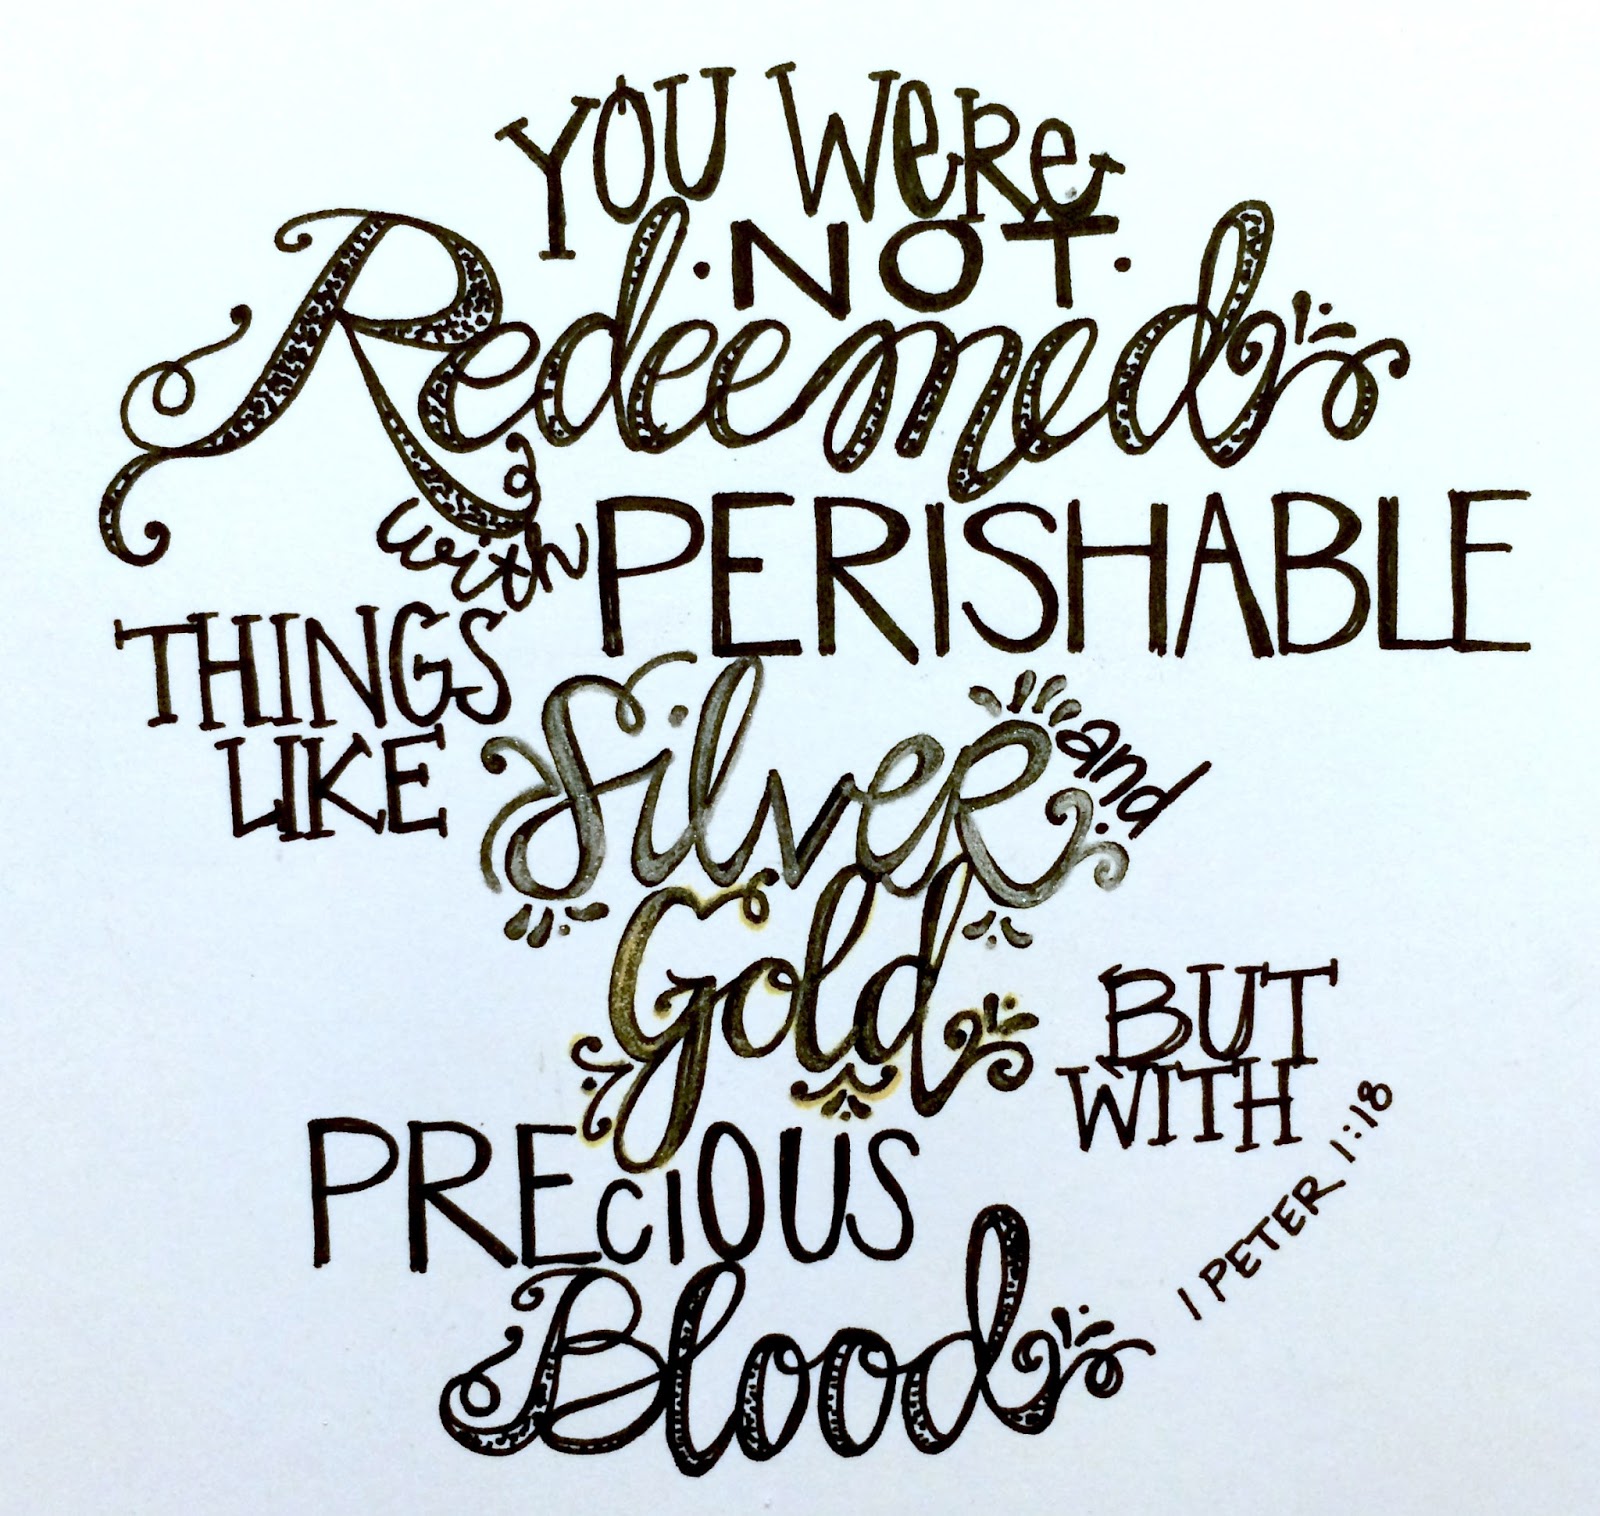 YOU WeRe
·NOT·
Redeemed
with PERISHABLE
THINGS
LIKE Silver and
Gold
BUT
WITH
PREcIOUS
Blood
1 PETER 1:18